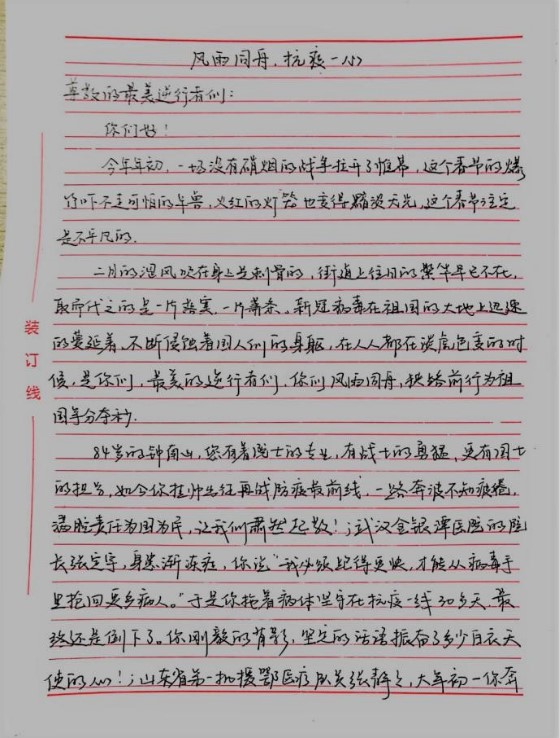 风雨同舟,抗疫一心
尊敬的最美逆行者们:
你们好!
今年年初,一场没有硝烟的战争拉开了帷幕,这个春节的爆
竹吓不走可怕的年兽,火红的灯笼也变得黯淡无光,这个春节注定
是不平凡的.
二月的湿风吹在身上是刺骨的,街道上往日的繁华早已不在,
取而代之的是一片寂寞,一片萧条.新冠病毒在祖国的大地上迅速
的蔓延着,不断侵蚀着国人们的身躯,在人人都在谈虎色变的时
候,是你们,最美的逆行者们,你们风雨同舟,挟路前行为祖
国争分夺秒.
84岁的钟南山,您有着院士的专业,有战士的勇猛,更有国士
的担当,如今你挂帅出征再战防疫最前线,一路奔波不知疲惫,
满腔责任为国为民,让我们肃然起敬!;武汉金银潭医院的院
长张定宇,身患渐冻症,你说"我必须跑得更快,才能从病毒手
里抢回更多病人。"于是你拖着病体坚守在抗疫一线30多天,最
终还是倒下了。你刚毅的背影,坚定的话语振奋了多少白衣天
使的心!;山东省第一批援鄂医疗队员张静静,大年初一你奔
装订线